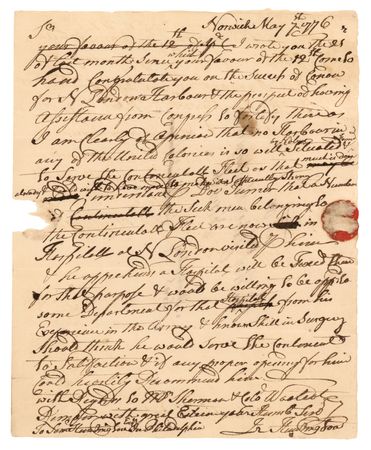 Sr Norwich May 7th 1776
your favour of the 12th I wrote you the 21
of last month Since which your favour of the 12th Come to
hand Congratulate you on the Success of Cannon
for N London Harbour & the prospect of having
assistance from Congress to fortify there as
I am Clearly of Opinion that no Harbour in
any of the United Colonies is so well Situated
to Serve the Continental Fleet as that much is done
already
understand Govr Turner that a Number
Continental the Sick men belonging to
the Continental Fleet are now in
Hospitall at N London
he apprehends a Hospital will be fixed there
for that purpose & would be willing to be appd to
some Department for that Hospital from his
Experience in the Army & known Skill in Surgery
Should think he would Serve the Continent
to Satisfaction & if any proper opening for him
Can heartily Recommend him
with Regards to Mr Sherman & Colo Wolcott
with great Esteem your Humb Servt
To Saml Huntington In Philadelphia Jn Huntington